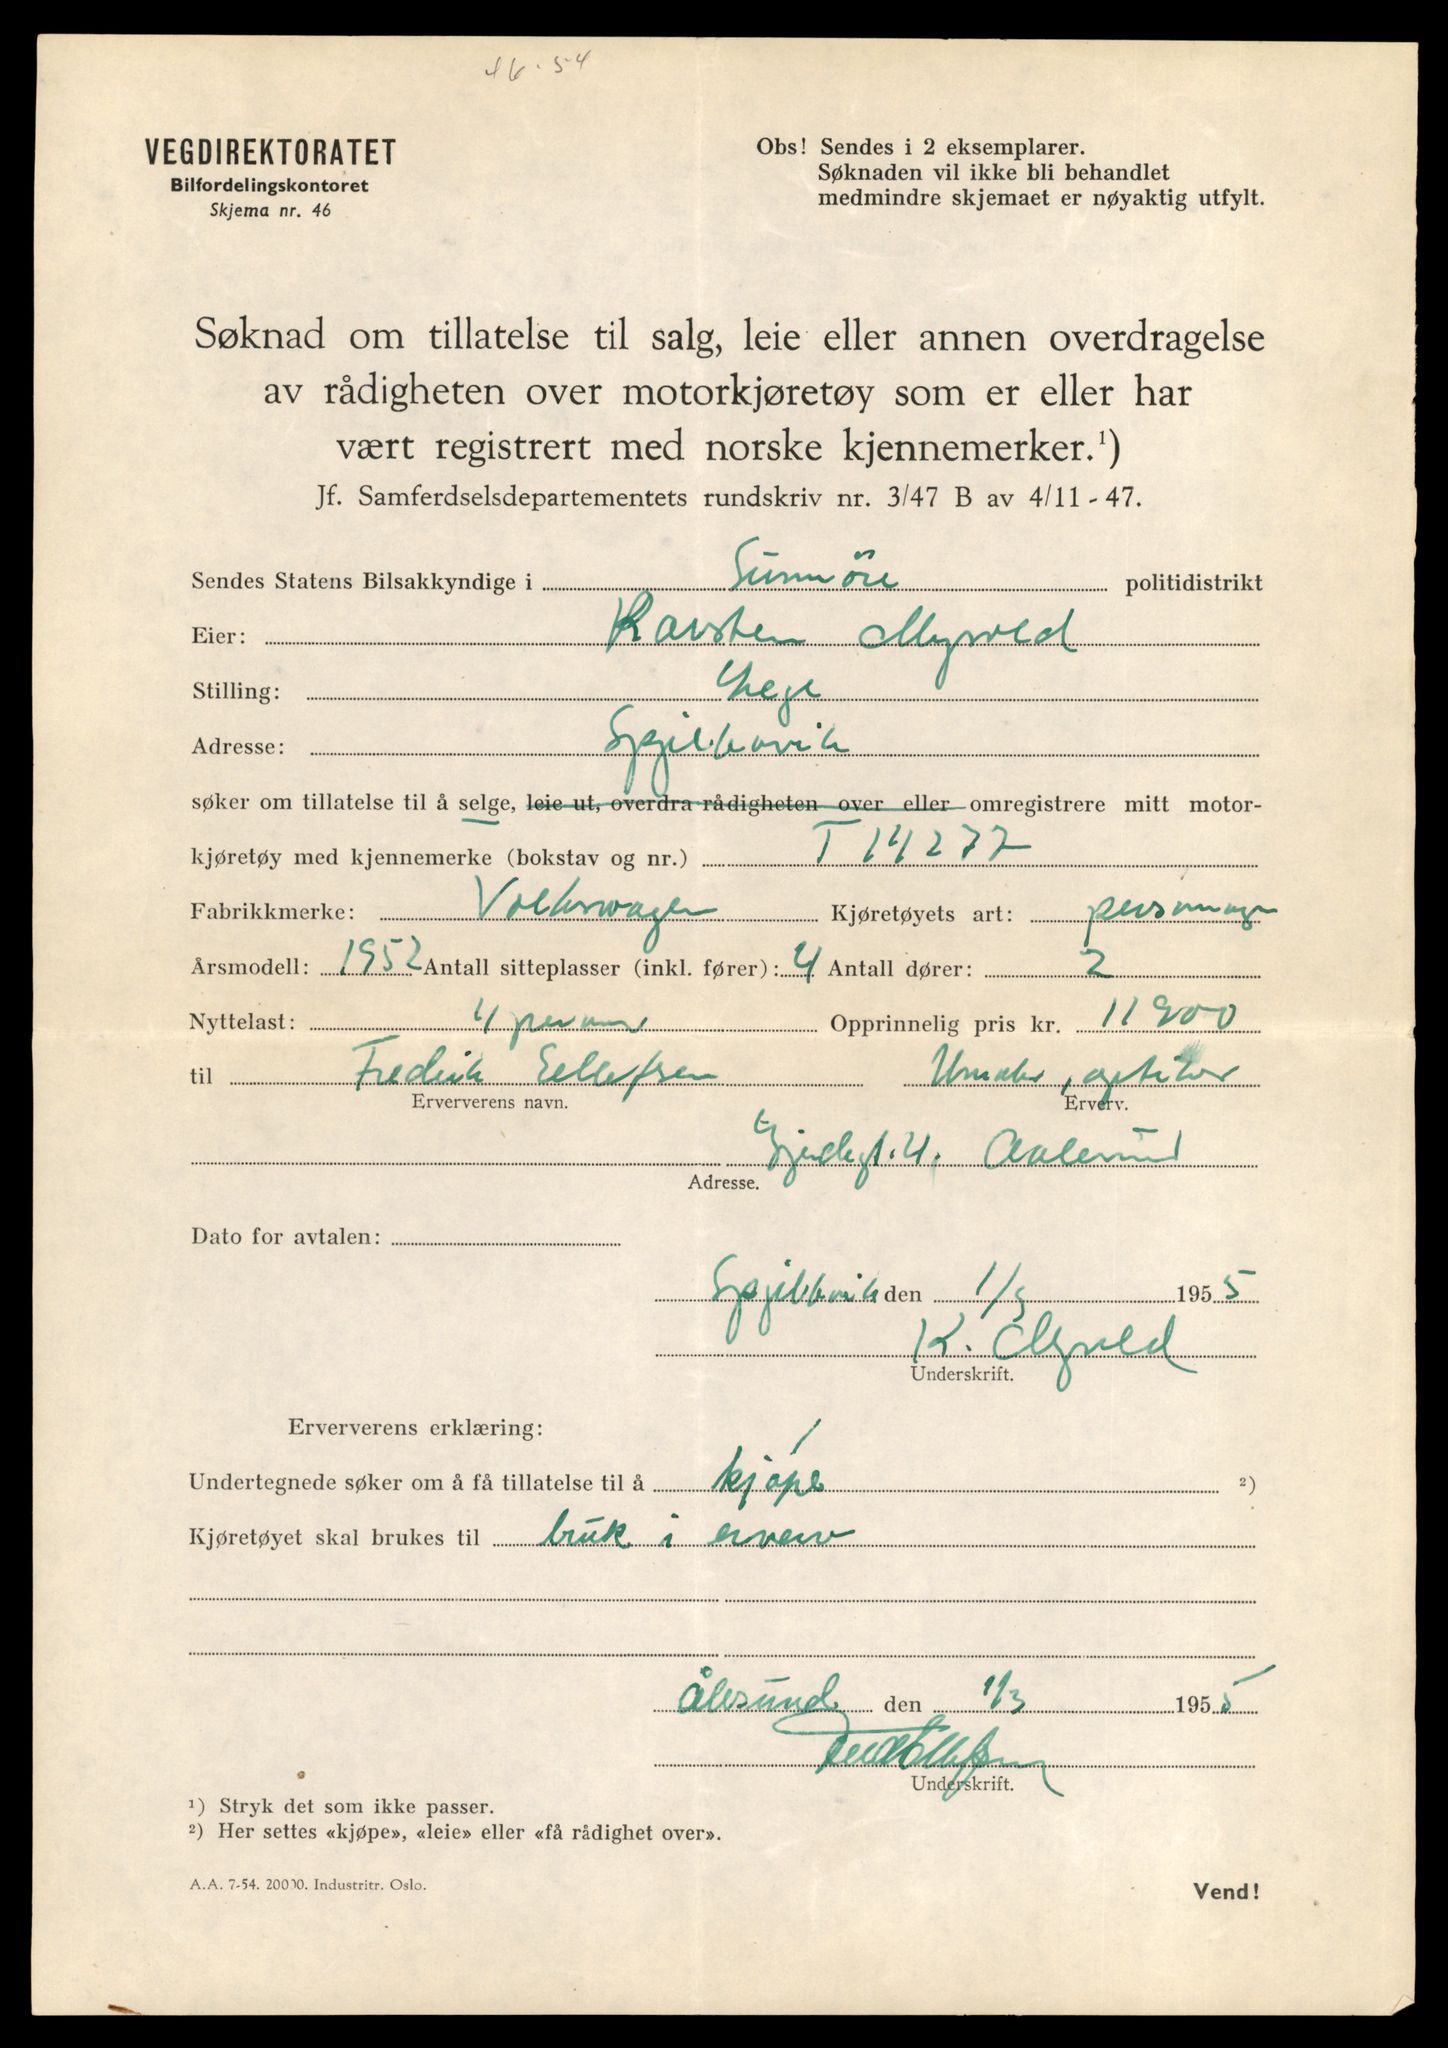 46-54
VEGDIREKTORATET
Bilfordelingskontoret
Skjema nr. 46
Obs! Sendes i 2 eksemplarer.
Søknaden vil ikke bli behandlet
medmindre skjemaet er nøyaktig utfylt.
Søknad om tillatelse til salg, leie eller annen overdragelse
av rådigheten over motorkjøretøy som er eller har
vært registrert med norske kjennemerker.¹)
Jf. Samferdselsdepartementets rundskriv nr. 3/47 B av 4/11 - 47.
Sendes Statens Bilsakkyndige i Sunnmöre politidistrikt
Eier: Karsten Myrvold
Stilling: Lege
Adresse: Spjelkavik
søker om tillatelse til å selge, leie ut, overdra rådigheten over eller omregistrere mitt motor-
kjøretøy med kjennemerke (bokstav og nr.) T 14277
Fabrikkmerke: Volkswagen Kjøretøyets art: personvogn
Årsmodell: 1952 Antall sitteplasser (inkl. fører): 4 Antall dører: 2
Nyttelast: 4 personer Opprinnelig pris kr. 11900
til Fredrik Ellefsen Urmaker, optiker
Erververens navn. Erverv.
4, Aalesund
Adresse.
Dato for avtalen:
Spjelkavik den 1/3 1955
K. Myrvold
Underskrift.
Erververens erklæring:
Undertegnede søker om å få tillatelse til å kjøpe ²)
Kjøretøyet skal brukes til bruk i erverv
Ålesund den 1/3 1955
Fredr Ellefsen
Underskrift.
¹) Stryk det som ikke passer.
²) Her settes «kjøpe», «leie» eller «få rådighet over».
A.A. 7-54. 20000. Industritr. Oslo.
Vend!